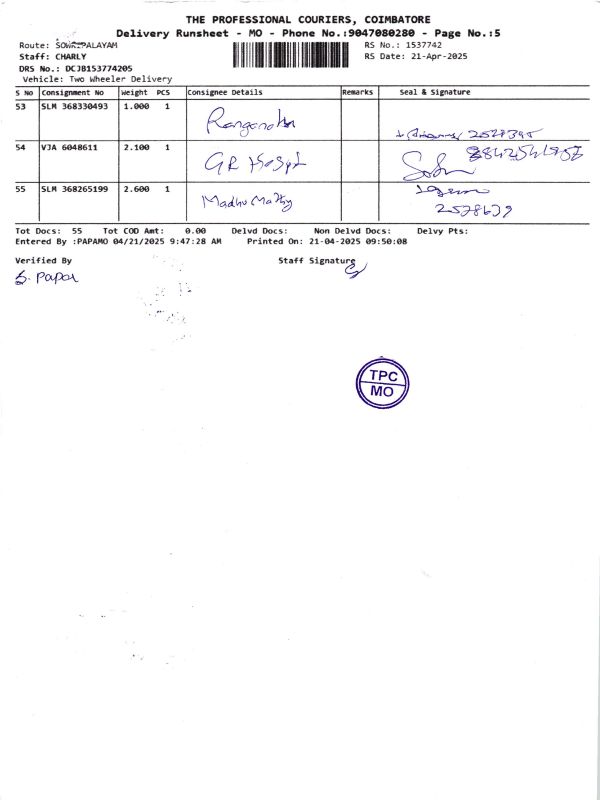 THE PROFESSIONAL COURIERS, COIMBATORE
Delivery Runsheet - MO - Phone No.:9047080280 - Page No.:5
Route: SOWRIPALAYAM RS No.: 1537742
Staff: CHARLY RS Date: 21-Apr-2025
DRS No.: DCJB153774205
Vehicle: Two Wheeler Delivery
S No Consignment No Weight PCS Consignee Details Remarks Seal & Signature
53 SLM 368330493 1.000 1
2528395
54 VJA 6048611 2.100 1 GR Hospt
55 SLM 368265199 2.600 1 Madhu Mathy
2528639
Tot Docs: 55 Tot COD Amt: 0.00 Delvd Docs: Non Delvd Docs: Delvy Pts:
Entered By :PAPAMO 04/21/2025 9:47:28 AM Printed On: 21-04-2025 09:50:08
Verified By Staff Signature
S. Papa
TPC
MO